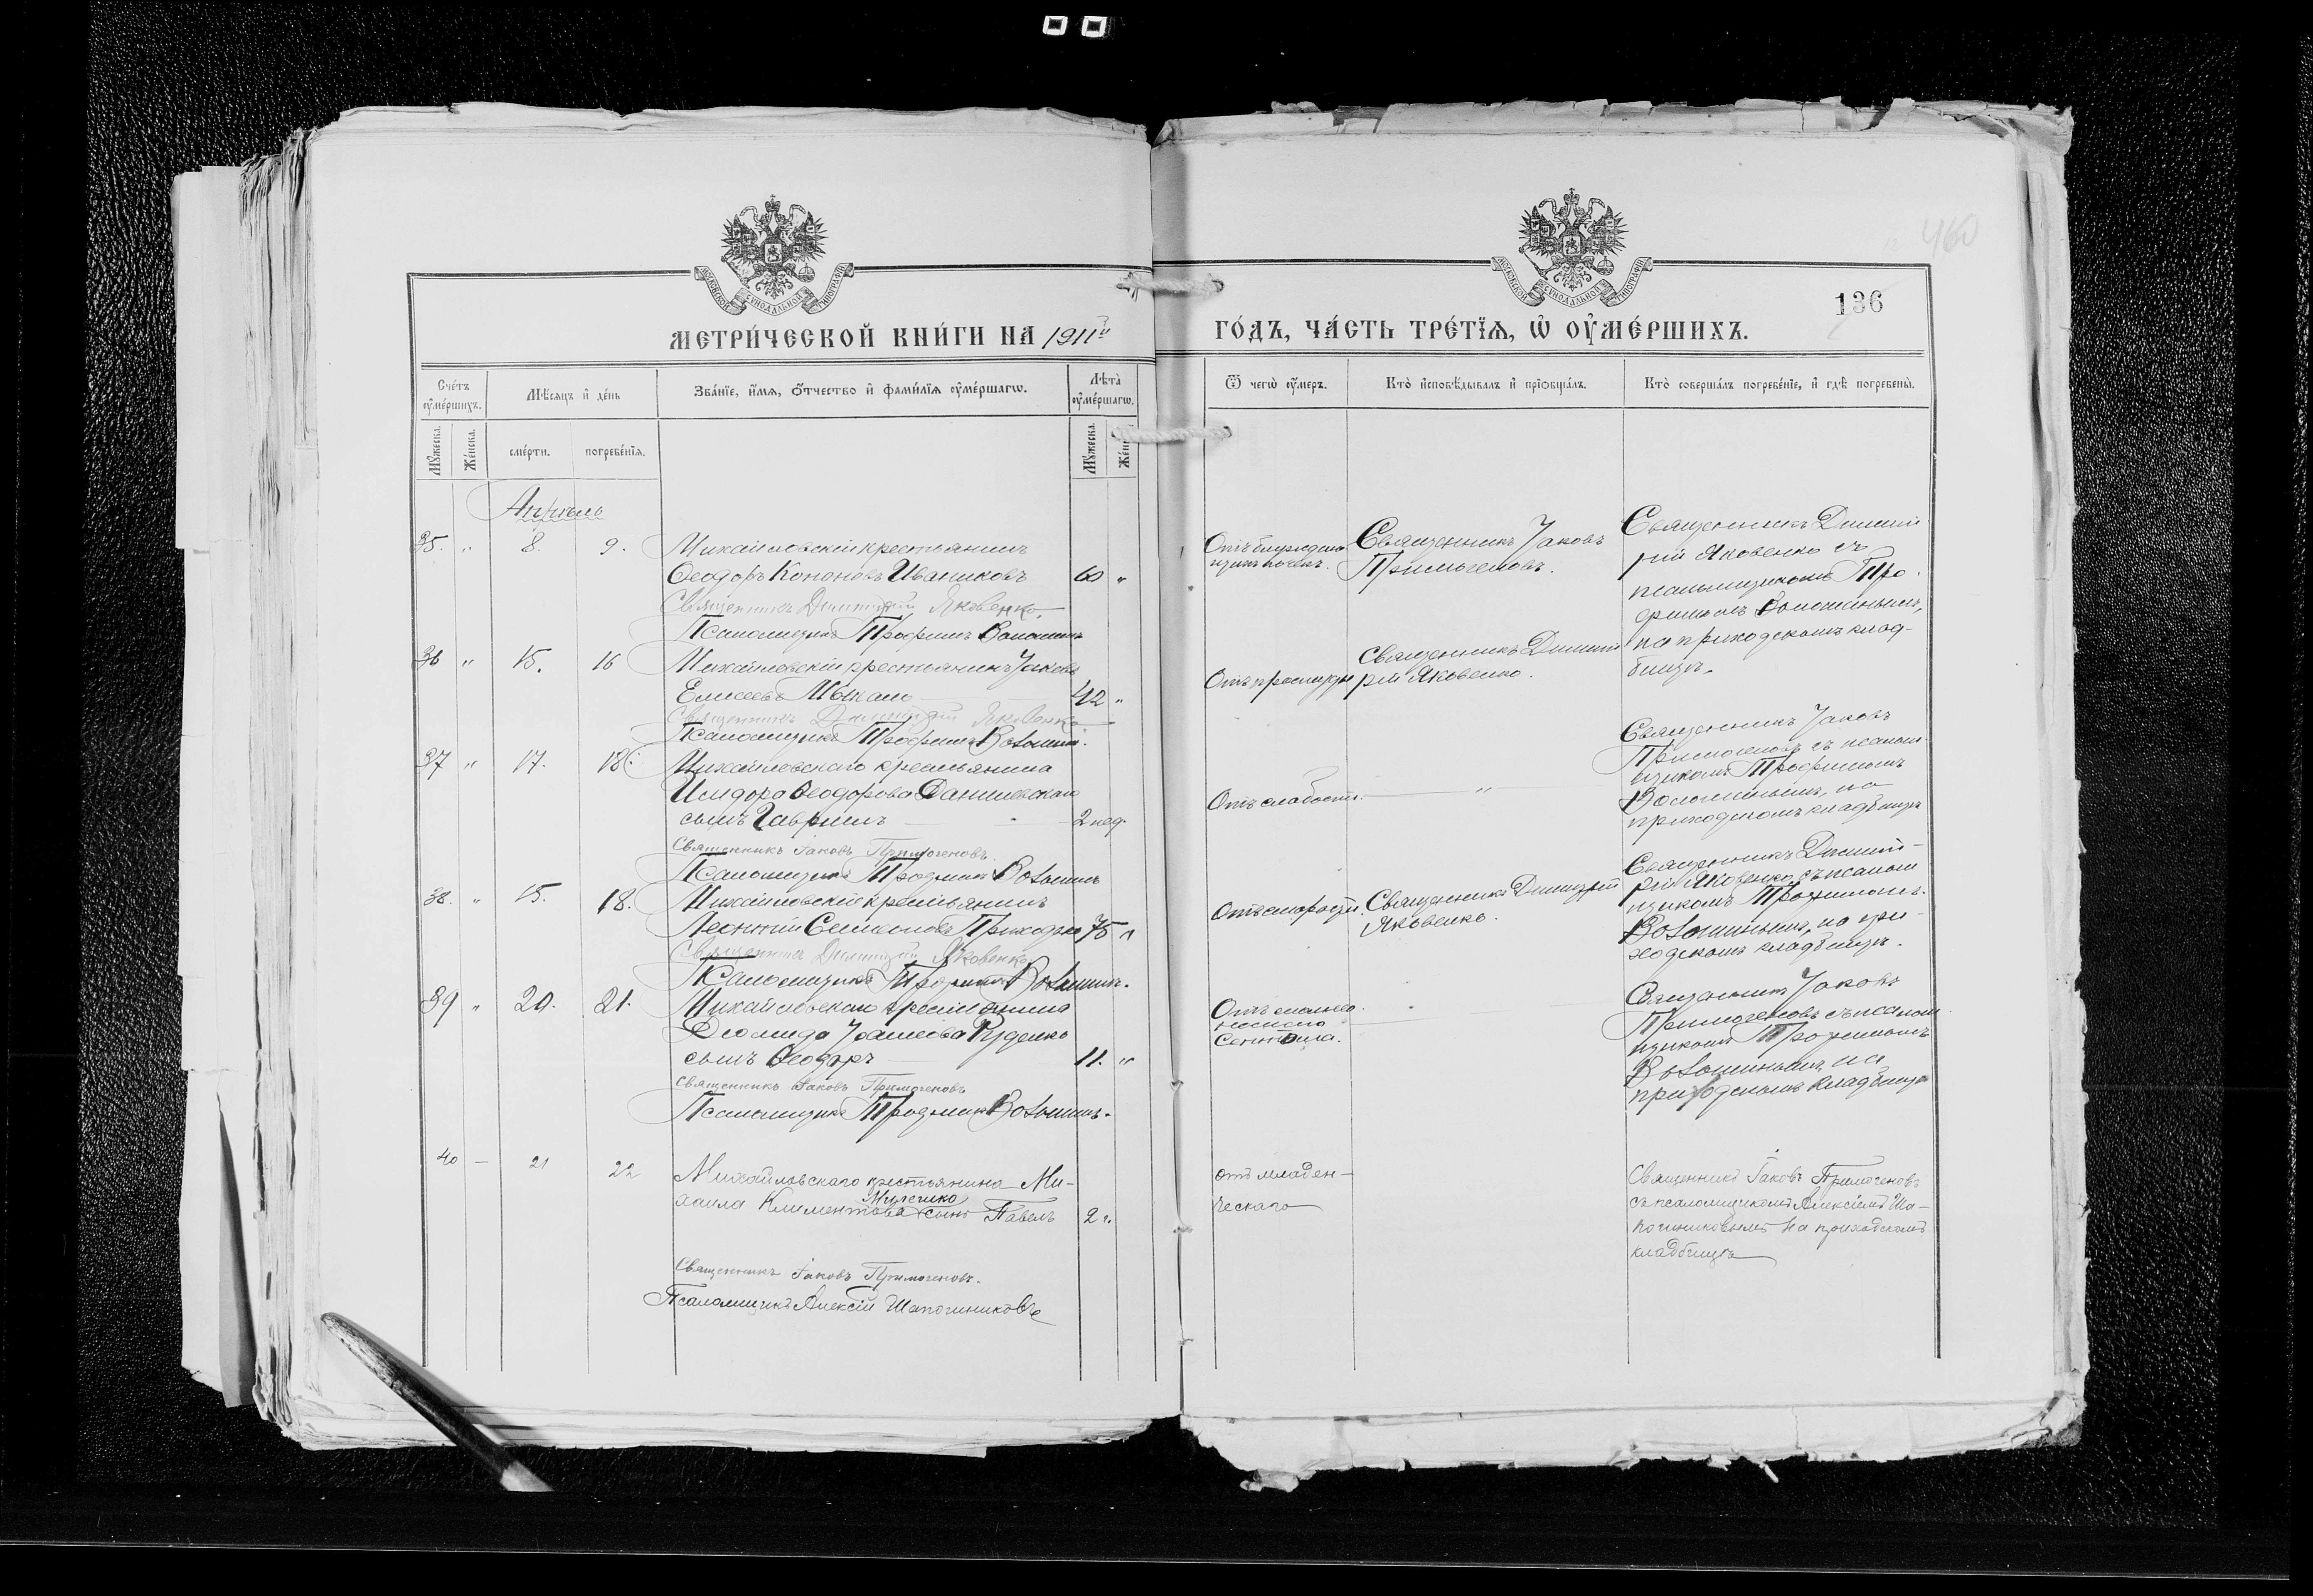 460
136
МОСКОВСКОЙ СѴНОДАЛЬНОЙ ТИПОГРАФІИ
МОСКОВСКОЙ СѴНОДАЛЬНОЙ ТИПОГРАФІИ
МЕТРИ́ЧЕСКОЙ КНИ́ГИ НА 1911й
ГО́ДЪ, ЧА́СТЬ ТРЕ́ТЇѦ, Ѡ҆ ОУ҆МЕ́РШИХЪ.
Сче́тъ оу҆ме́ршихъ.
Мѣ́сяцъ и҆ де́нь
Зва́нїе, и҆́мѧ, ѻ҆́тчество и҆ фами́лїѧ оу҆ме́ршагѡ.
Лѣта̀ оу҆ме́ршагѡ.
Ѿ чегѡ̀ оу҆́меръ.
Кто̀ и҆сповѣ́дывалъ и҆ прїѡбща́лъ.
Кто̀ соверша́лъ погребе́нїе, и҆ гдѣ̀ погребены̀.
Мꙋ́жеска.
Же́нска.
сме́рти.
погребе́нїѧ.
Мꙋ́жеска.
Же́нска.
Апрѣль
35. " 8. 9. Михайловскій крестьянинъ
Ѳеодоръ Кононовъ Иваниковъ 60 "
Священникъ Димитрій Яковенко.
Псаломщикъ Трофимъ Волошинъ
почекъ.
Священникъ Іаковъ
Примогеновъ.
Священникъ Димит
рій Яковенко съ
псаломщикомъ Тро
фимомъ Волошинымъ,
на приходскомъ клад-
бищѣ.
36 " 15. 16 Михайловскій крестьянинъ Іаковъ
Елисеевъ 42 "
Священникъ Димитрій Яковенко
Псаломщикъ Трофимъ Волошинъ.
Отъ простуды
Священникъ Димит
рій Яковенко.
37 " 17. 18. Михайловскаго крестьянина
Исидора Ѳеодорова Данилевскаго
сынъ Гавріилъ 2 нед.
Священникъ Іаковъ Примогеновъ.
Псаломщикъ Трофимъ Волошинъ
Отъ слабости. "
Священникъ Іаковъ
Примогеновъ съ псалом
щикомъ Трофимомъ
Волошинымъ, на
приходскомъ кладбищѣ
38. " 15. 18. Михайловскій крестьянинъ
Леонтій Симеоновъ Приходько 75 "
Священникъ Димитрій Яковенко
Псаломщикъ Трофимъ Волошинъ.
Отъ старости.
Священникъ Димитрій
Яковенко.
Священникъ Димит-
рій Яковенко съ псалом
щикомъ Трофимомъ
Волошинымъ, на при-
ходскомъ кладбищѣ.
39 " 20. 21. Михайловскаго крестьянина
Діомида Руденко
сынъ Ѳеодоръ 11. "
Священникъ Іаковъ Примогеновъ
Псаломщикъ Трофимъ Волошинъ.
Священникъ Іаковъ
Примогеновъ съ псалом
щикомъ Трофимомъ
Волошинымъ, на
приходскомъ кладбищѣ
40 — 21 22 Михайловскаго крестьянина Ми-
хаила Климентова сынъ Павелъ 2 г.
Священникъ Іаковъ Примогеновъ.
Псаломщикъ Алексій Шапошниковъ
отъ младен-
ческаго
Священникъ Іаковъ Примогеновъ
съ псаломщикомъ Алексіемъ Ша-
пошниковымъ на приходскомъ
кладбищѣ